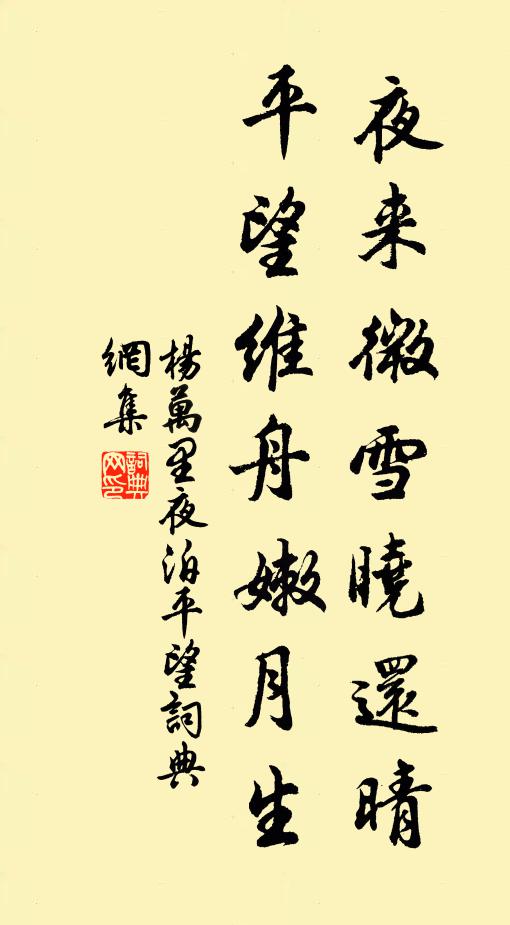 夜来微雪曉還晴
平望維舟嫩月生
楊萬里夜泊平望詞典
網集
詞典
网印